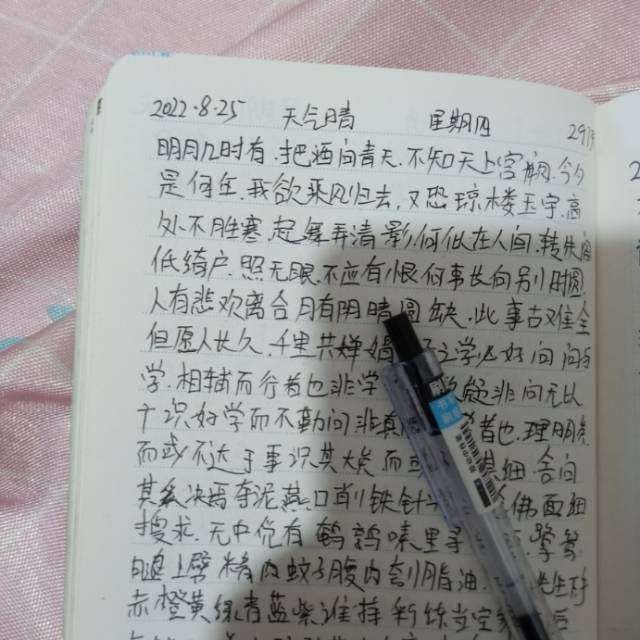 2022.8.25 天气晴 星期四 297
明月几时有.把酒问青天.不知天上宫阙.今夕
是何年.我欲乘风归去,又恐琼楼玉宇,高
处不胜寒,起舞弄清影,何似在人间,转朱阁
低绮户.照无眠.不应有恨何事长向别时圆
人有悲欢离合月有阴晴圆缺.此事古难全
但愿人长久.千里共婵娟 学必好问问与
学.相辅而行者也非学 疑非问无以
广识好学而不勤问非真 者也.理明矣
而或不达于事识其大矣而 细舍问
其奚决焉夺泥燕口削铁针 佛面细
搜求.无中觅有鹌鹑嗉里 鹭鸶
腿上劈精肉蚊子腹内刳脂油
赤橙黄绿青蓝紫谁持彩练当空